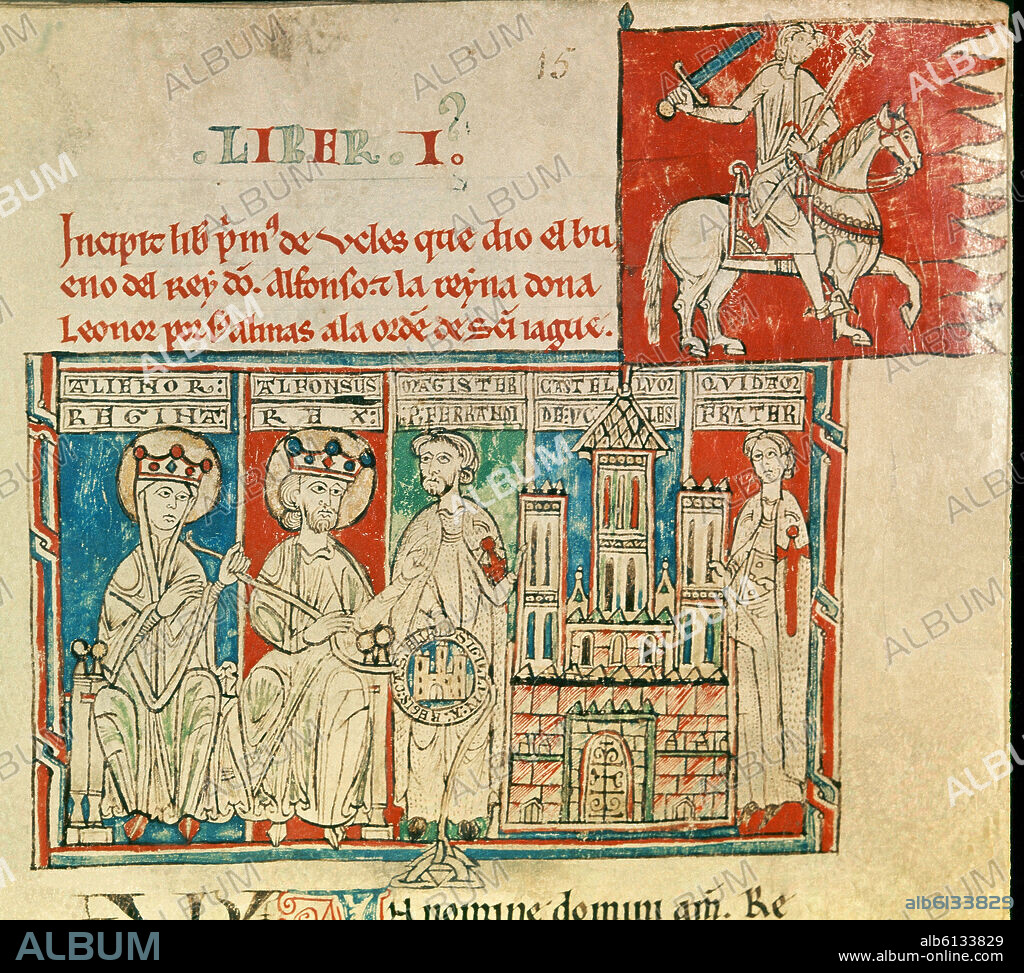 15
.LIBER.I.
Incipit lib p̄mꝰ de Vcles que dio el bu
eno del Rey dō. Alfonso. ⁊ la reyna dona
Leonor por salmas a la ordē de sc̄i iague.
ALIENOR:
REGINA:
ALFONSUS
REX:
MAGISTER
P. FERRANDI
CASTELLUM
DE UCLES
QUIDAM
FRATER
domini am̄. Re
ALBUM
alb6133829
alb6133829
www.album-online.com